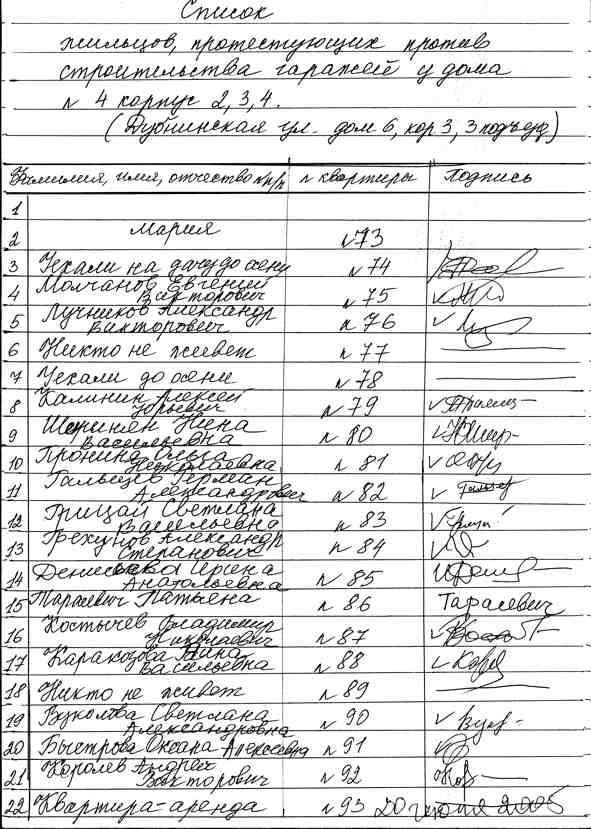 Список
жильцов, протестующих против
строительства гаражей у дома
№ 4 корпус 2, 3, 4.
(Дубнинская ул. дом 6, кор 3, 3 подъезд)
Фамилия, имя, отчество №п/п № квартиры Подпись
1
2 Мария №73
3 Уехали на дачу до осени №74
4 Молчанов Евгений
Викторович №75
5 Лучников Александр
Викторович №76
6 Никто не живет №77
7 Уехали до осени №78
8 Калинин Алексей
Юрьевич №79
9 Нина
Васильевна №80
10 Пронина Ольга
Николаевна №81
11 Гальцев Герман
Александрович №82
12 Грицай Светлана
Васильевна №83
13 Грехунов Александр
Степанович №84
14 Ирина
Анатольевна №85
15 Тарасевич Татьяна №86 Тарасевич
16 Костычев Владимир
Николаевич №87
17 Каракозова Нина
Васильевна №88
18 Никто не живет №89
19 Вуколова Светлана
Александровна №90
20 Быстрова Оксана Алексеевна №91
21 Королев Андрей
Викторович №92
22 Квартира-аренда №93 20 2005